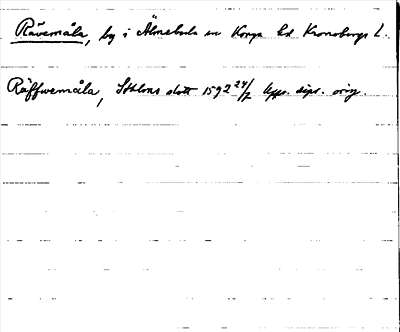 Rävemåla, by i Älmeboda sn Konga hd Kronobergs L.
Räffwemåla, Sthlms slott 1592 24/2 Upps. dipl. orig.